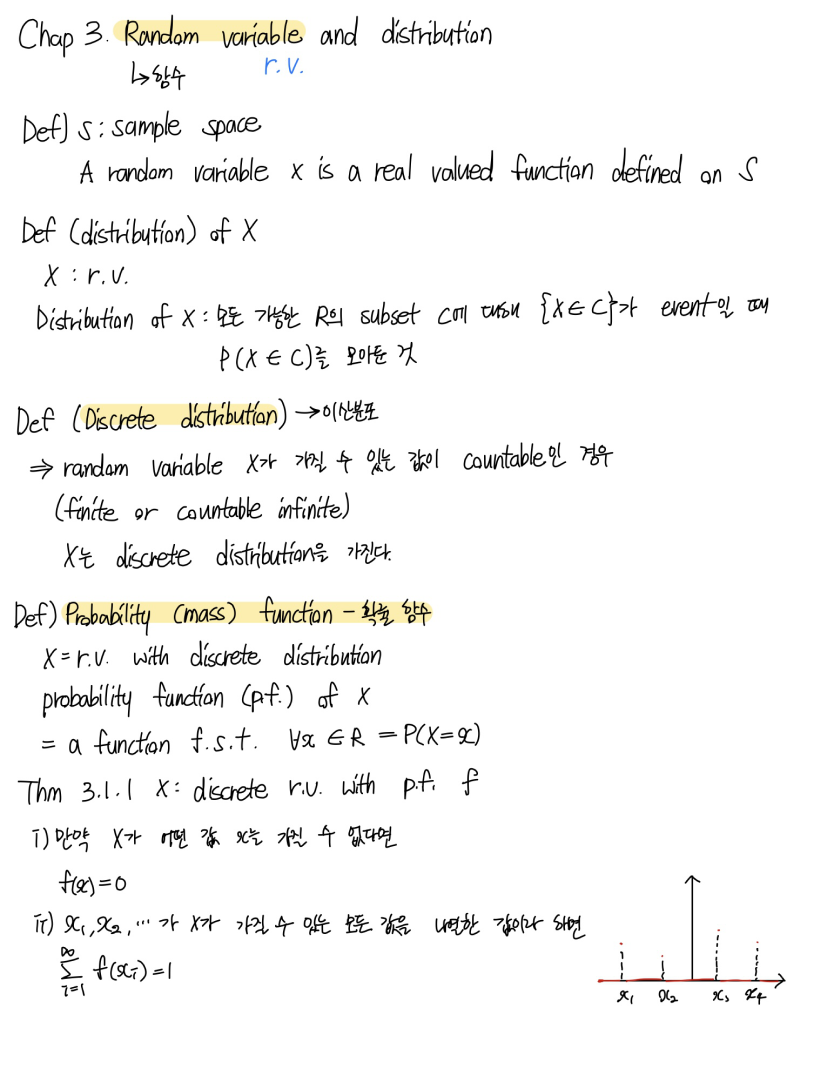 Chap 3. Random variable and distribution
↳함수 r.v.
Def) S: sample space
A random variable X is a real valued function defined on S
Def (distribution) of X
X : r.v.
Distribution of X : 모든 가능한 R의 subset C에 대해 {X∈C}가 event일 때
P(X∈C)를 모아둔 것
Def (Discrete distribution) →이산분포
⇒ random variable X가 가질 수 있는 값이 countable인 경우
(finite or countable infinite)
X는 discrete distribution을 가진다.
Def) Probability (mass) function - 확률 함수
X=r.v. with discrete distribution
probability function (p.f.) of X
= a function f.s.t. ∀x ∈ R = P(X=x)
Thm 3.1.1 X: discrete r.v. with p.f. f
i) 만약 X가 어떤 값 x를 가질 수 없다면
f(x)=0
ii) x₁, x₂, ⋯ 가 X가 가질 수 있는 모든 값을 나열한 값이라 하면
∞
Σ f(xᵢ)=1
i=1
x₁ x₂ x₃ x₄